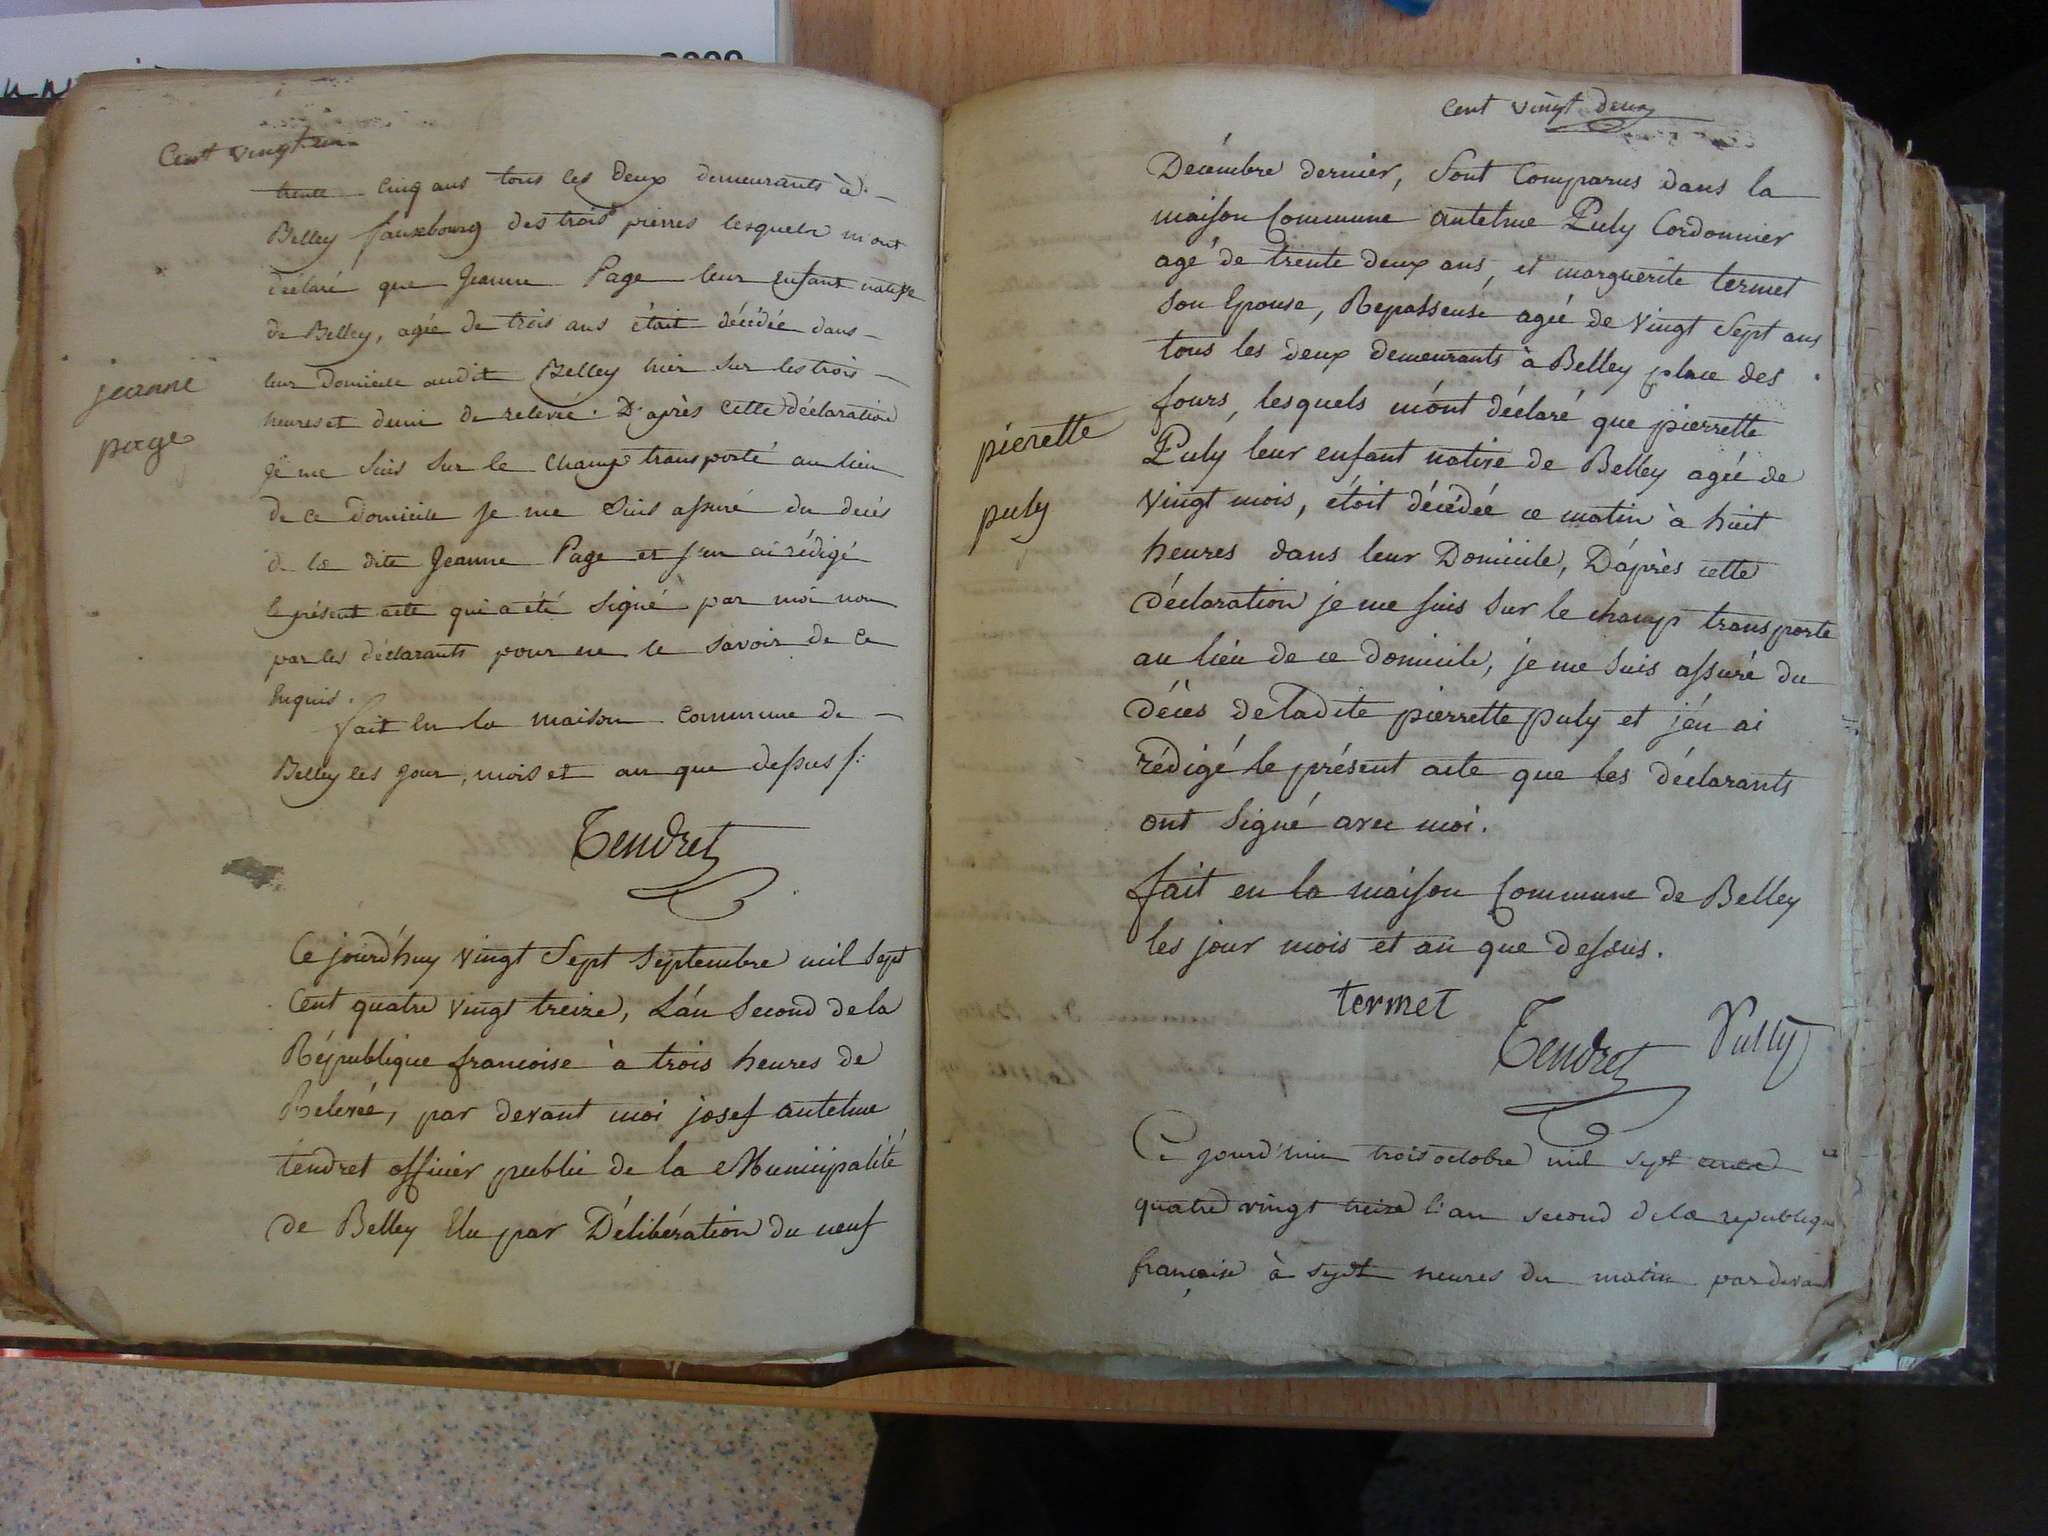 2009
Cent vingt un
trente cinq ans tous les deux demeurants à
Belley fauxbourg des trois pierres lesquels m'ont
déclaré que Jeanne Page leur enfant native
de Belley, agée de trois ans était décédée dans
leur domicile audit Belley hier sur les trois
heures et demi de relevée. D'après cette déclaration
je me suis sur le champ transporté au lieu
de ce domicile je me suis assuré du decés
de la dite Jeanne Page et j'en ai rédigé
le présent acte qui a été signé par moi non
par les déclarants pour ne le savoir de ce
enquis.
fait en la maison commune de
Belley les jour, mois et an que dessus
Tendret
jeanne
page
Ce jourd'huy vingt sept septembre mil sept
Cent quatre vingt treize, L'an second de la
République francoise à trois heures de
Relevée, par devant moi josef antelme
tendret officier public de la Municipalité
de Belley Elu par Délibération du neuf
Cent vingt deux
Decémbre dernier, Sont Comparus dans la
maison Commune antelme Puly Cordonnier
agé de trente deux ans, et marguerite termet
son Epouse, Repasseuse agée de vingt sept ans
tous les deux demeurants à Belley place des
fours, lesquels m'ont déclaré que pierrette
Puly leur enfant native de Belley agée de
vingt mois, étoit décédée ce matin à huit
heures dans leur Domicile, D'après cette
déclaration je me suis sur le champ transporte
au lieu de ce domicile, je me suis assuré du
décès de ladite pierrette puly et j'en ai
rédigé le présent acte que les déclarants
ont signé avec moi.
fait en la maison Commune de Belley
les jour mois et an que dessus.
termet
Tendret
Pully
pierette
puly
Ce jourd'hui trois octobre mil sept cent
quatre vingt treize l'an second de la republique
française à sept heures du matin par devant